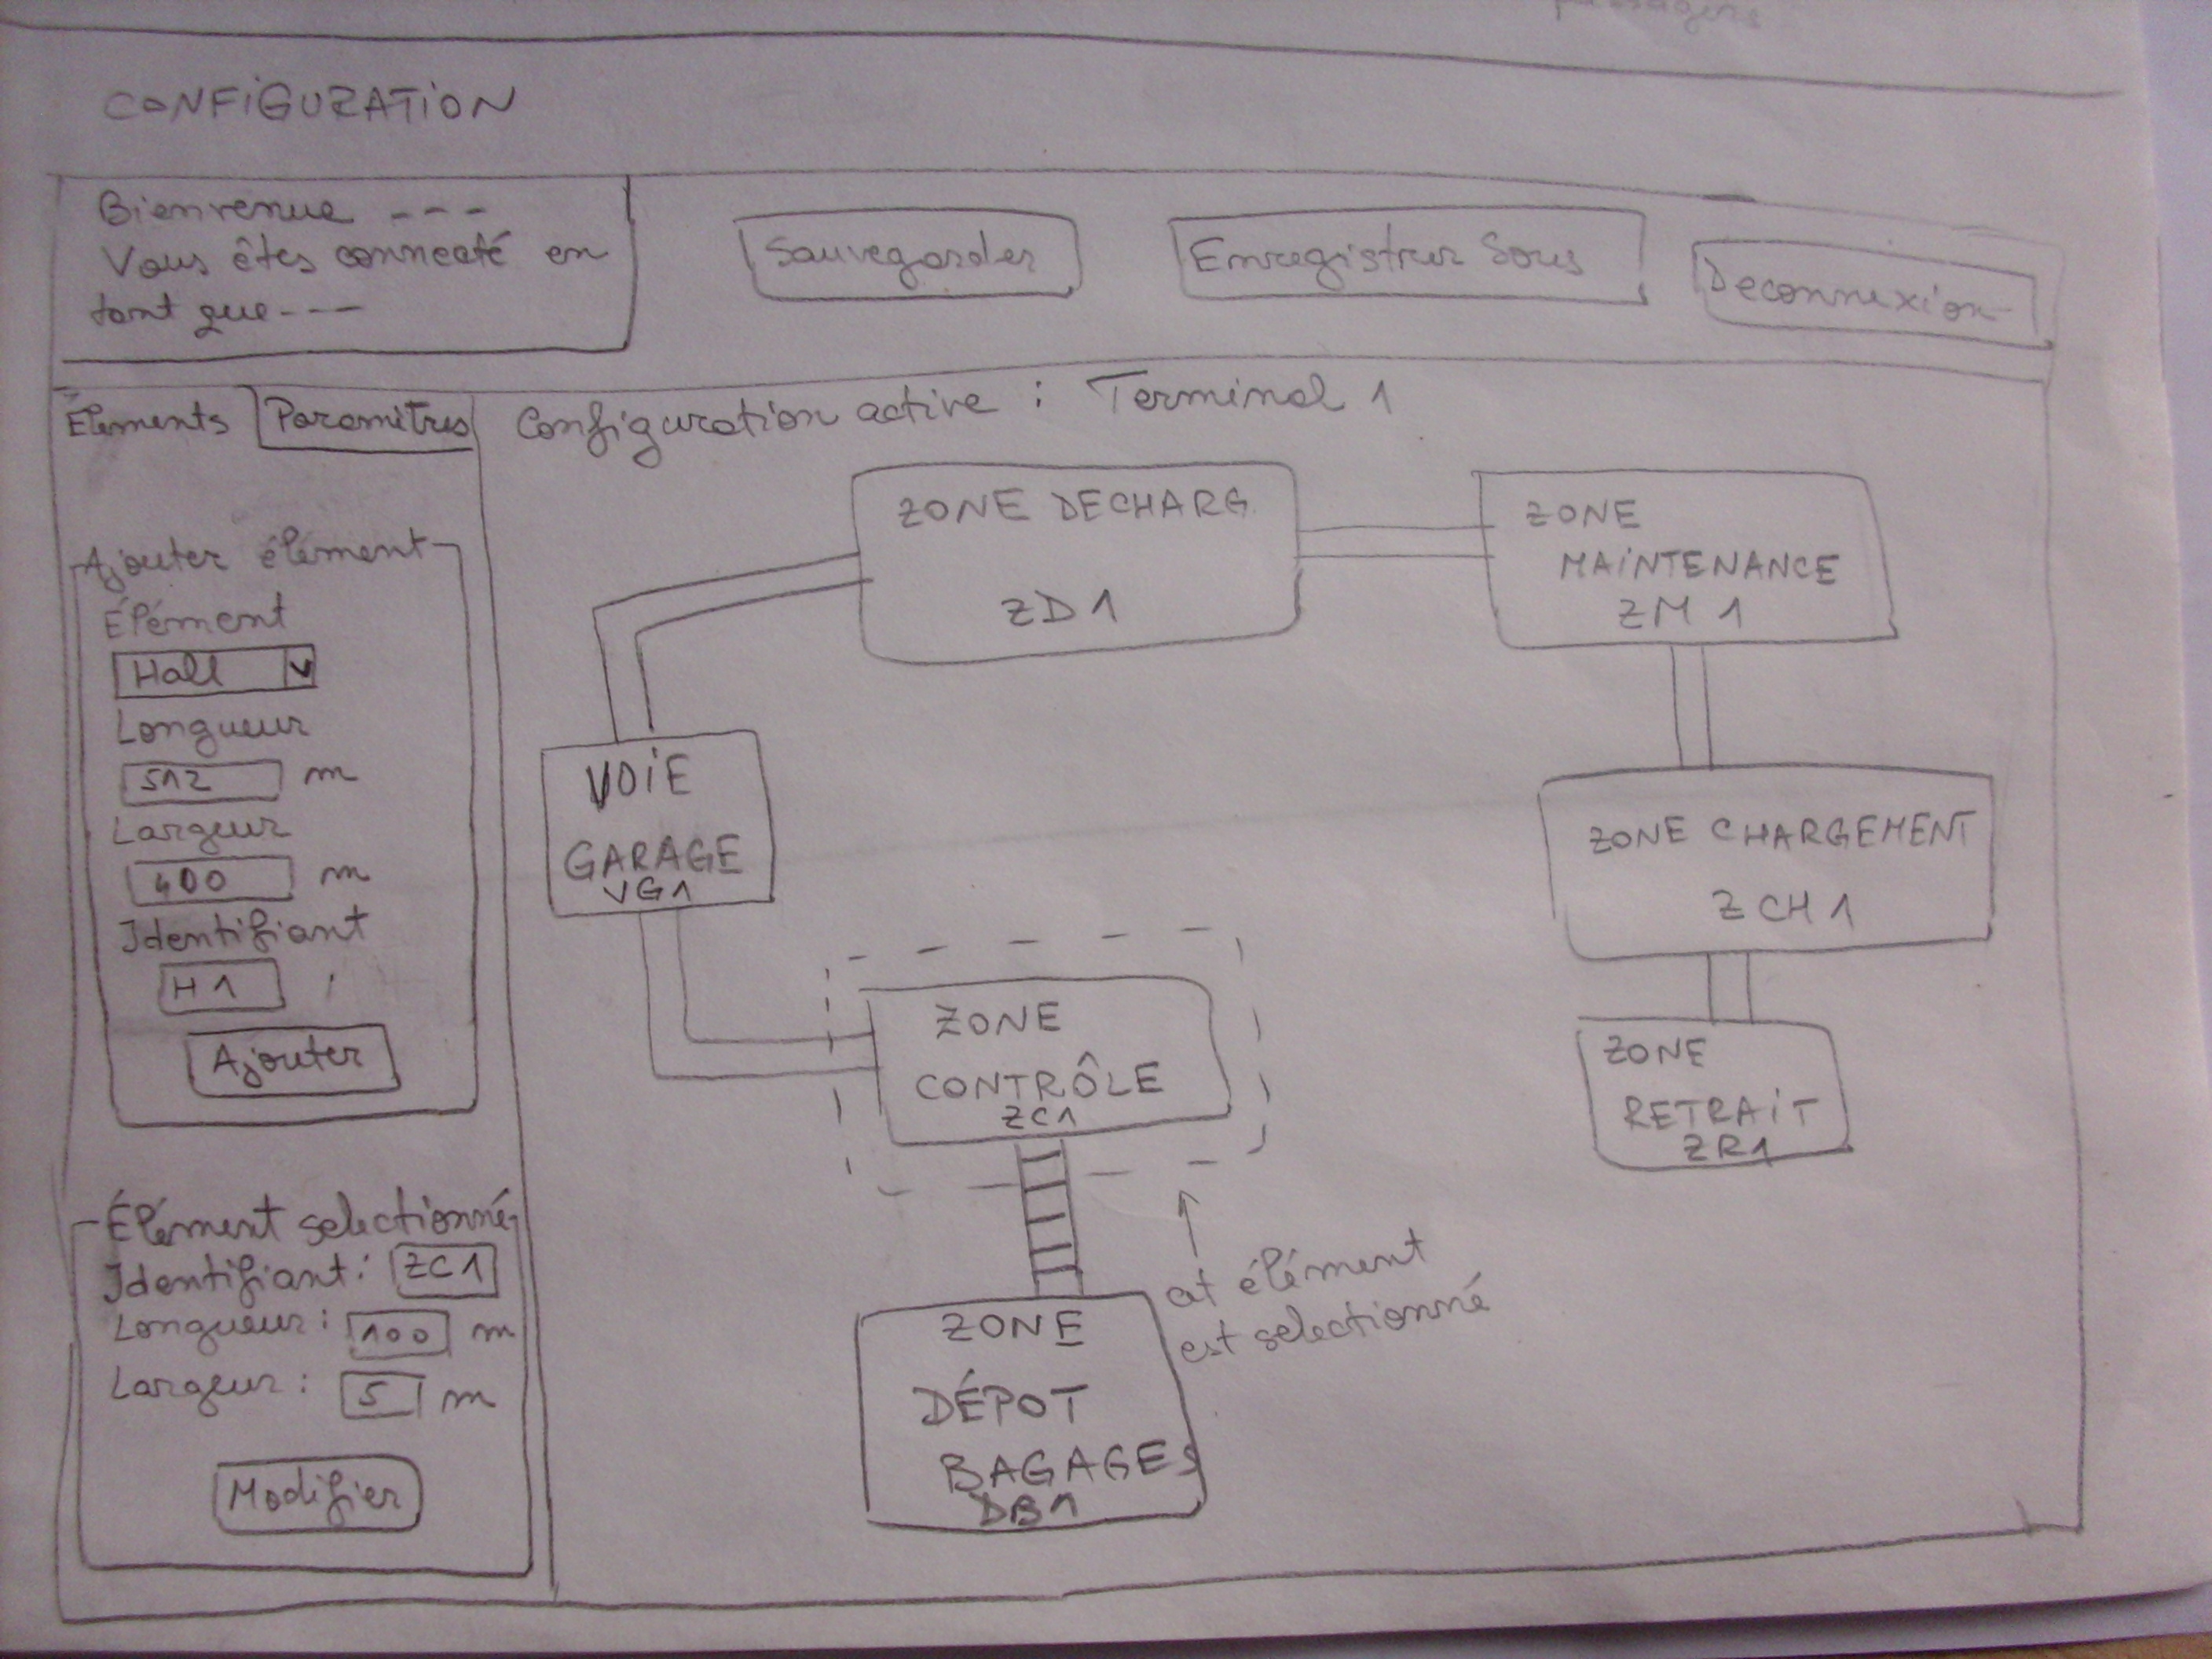 passagers
CONFIGURATION
Bienvenue ---
Vous êtes connecté en
tant que ---
Sauvegarder
Enregistrer Sous
Deconnexion
Éléments
Paramètres
Configuration active : Terminal 1
Ajouter élément
Élément
Hall
Longueur
512 m
Largeur
400 m
Identifiant
H1
Ajouter
Élément selectionné
Identifiant: ZC1
Longueur: 100 m
Largeur: 5 m
Modifier
ZONE DECHARG
ZD1
ZONE
MAINTENANCE
ZM 1
VOIE
GARAGE
VG1
ZONE CHARGEMENT
ZCH1
ZONE
CONTRÔLE
ZC1
ZONE
RETRAIT
ZR1
cet élément
est selectionné
ZONE
DÉPOT
BAGAGES
DB1